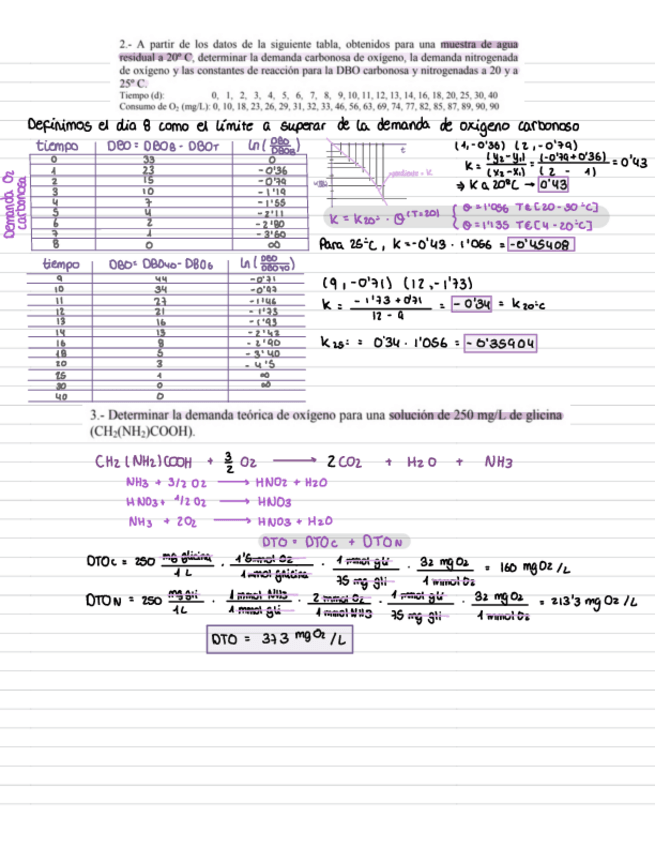 2.- A partir de los datos de la siguiente tabla, obtenidos para una muestra de agua
residual a 20º C, determinar la demanda carbonosa de oxígeno, la demanda nitrogenada
de oxígeno y las constantes de reacción para la DBO carbonosa y nitrogenadas a 20 y a
25º C.
Tiempo (d): 0, 1, 2, 3, 4, 5, 6, 7, 8, 9, 10, 11, 12, 13, 14, 16, 18, 20, 25, 30, 40
Consumo de O2 (mg/L): 0, 10, 18, 23, 26, 29, 31, 32, 33, 46, 56, 63, 69, 74, 77, 82, 85, 87, 89, 90, 90
Definimos el dia 8 como el límite a superar de la demanda de oxigeno carbonoso
Demanda O2 carbonosa
tiempo DBO = DBO8 - DBOT ln(DBO/DBO8)
0 33 0
1 23 -0'36
2 15 -0'79
3 10 -1'19
4 7 -1'55
5 4 -2'11
6 2 -2'80
7 1 -3'50
8 0 ∞
t
pendiente = K
(1,-0'36) (2,-0'79)
K = (y2-y1)/(x2-x1) = (-0'79+0'36)/(2 - 1) = 0'43
⇒ K a 20ºC → 0'43
K = K20º · θ^(T-20) { θ = 1'056 T∈[20-30ºC]
θ = 1'135 T∈[4-20ºC]
Para 25ºC, K = -0'43 · 1'056 = -0'45408
tiempo DBO = DBO40 - DBO6 ln(DBO/DBO40)
9 44 -0'71
10 34 -0'97
11 27 -1'46
12 21 -1'73
13 16 -1'93
14 13 -2'42
16 8 -2'90
18 5 -3'40
20 3 -4'5
25 1 ∞
30 0 ∞
40 0
(9,-0'71) (12,-1'73)
K = (-1'73 + 0'71)/(12 - 9) = -0'34 = K20ºC
K25º = 0'34 · 1'056 = -0'35904
3.- Determinar la demanda teórica de oxígeno para una solución de 250 mg/L de glicina
(CH2(NH2)COOH).
CH2(NH2)COOH + 3/2 O2 → 2CO2 + H2O + NH3
NH3 + 3/2 O2 → HNO2 + H2O
HNO3 + 1/2 O2 → HNO3
NH3 + 2O2 → HNO3 + H2O
DTO = DTOC + DTON
DTOC = 250 mg glicina/1L · 1'5 mmol O2/1 mmol glicina · 1 mmol gli/75 mg gli · 32 mg O2/1 mmol O2 = 160 mg O2/L
DTON = 250 mg gli/1L · 1 mmol NH3/1 mmol gli · 2 mmol O2/1 mmol NH3 · 1 mmol gli/75 mg gli · 32 mg O2/1 mmol O2 = 213'3 mg O2/L
DTO = 373 mg O2/L